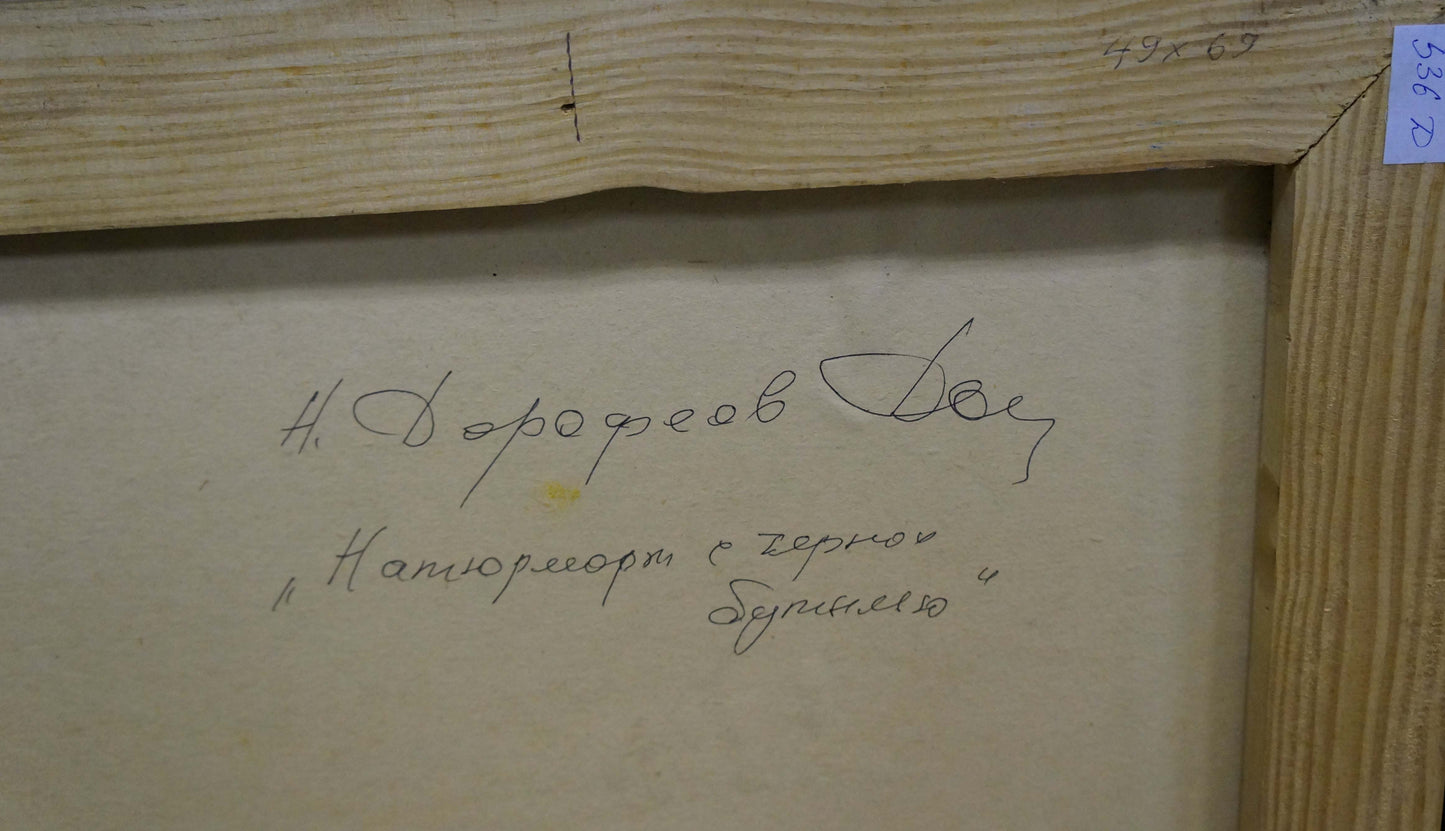 49 x 69
536 D
Н. Дорофеев
„Натюрморт с черной
бутылью“